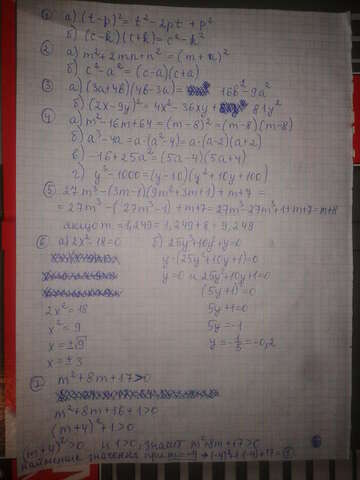 ① а) (t-p)² = t² - 2pt + p²
б) (c-k)(c+k) = c² - k²
② а) m² + 2mn + n² = (m+n)²
б) c² - a² = (c-a)(c+a)
③ а) (3a+4b)(4b-3a) = 16b² - 9a²
б) (2x-9y)² = 4x² - 36xy + 81y²
④ а) m² - 16m + 64 = (m-8)² = (m-8)(m-8)
б) a³ - 4a = a·(a²-4) = a·(a-2)(a+2)
в) -16 + 25a² = (5a-4)(5a+4)
г) y³ - 1000 = (y-10)(y²+10y+100)
⑤ 27m³ - (3m-1)(9m²+3m+1) + m+7 =
= 27m³ - (27m³-1) + m+7 = 27m³-27m³+1+m+7 = m+8
якщо m = 1,249 = 1,249 + 8 = 9,249
⑥ а) 2x² - 18 = 0 б) 25y³+10y²+y=0
y·(25y²+10y+1)=0
y=0 и 25y²+10y+1=0
(5y+1)²=0
2x² = 18 5y+1=0
x² = 9 5y = -1
x = ±√9 y = -1/5 = -0,2
x = ±3
⑦ m² + 8m + 17 > 0
m² + 8m + 16 + 1 > 0
(m+4)² + 1 > 0
(m+4)² > 0 и 1 > 0, значит m²+8m+17 > 0